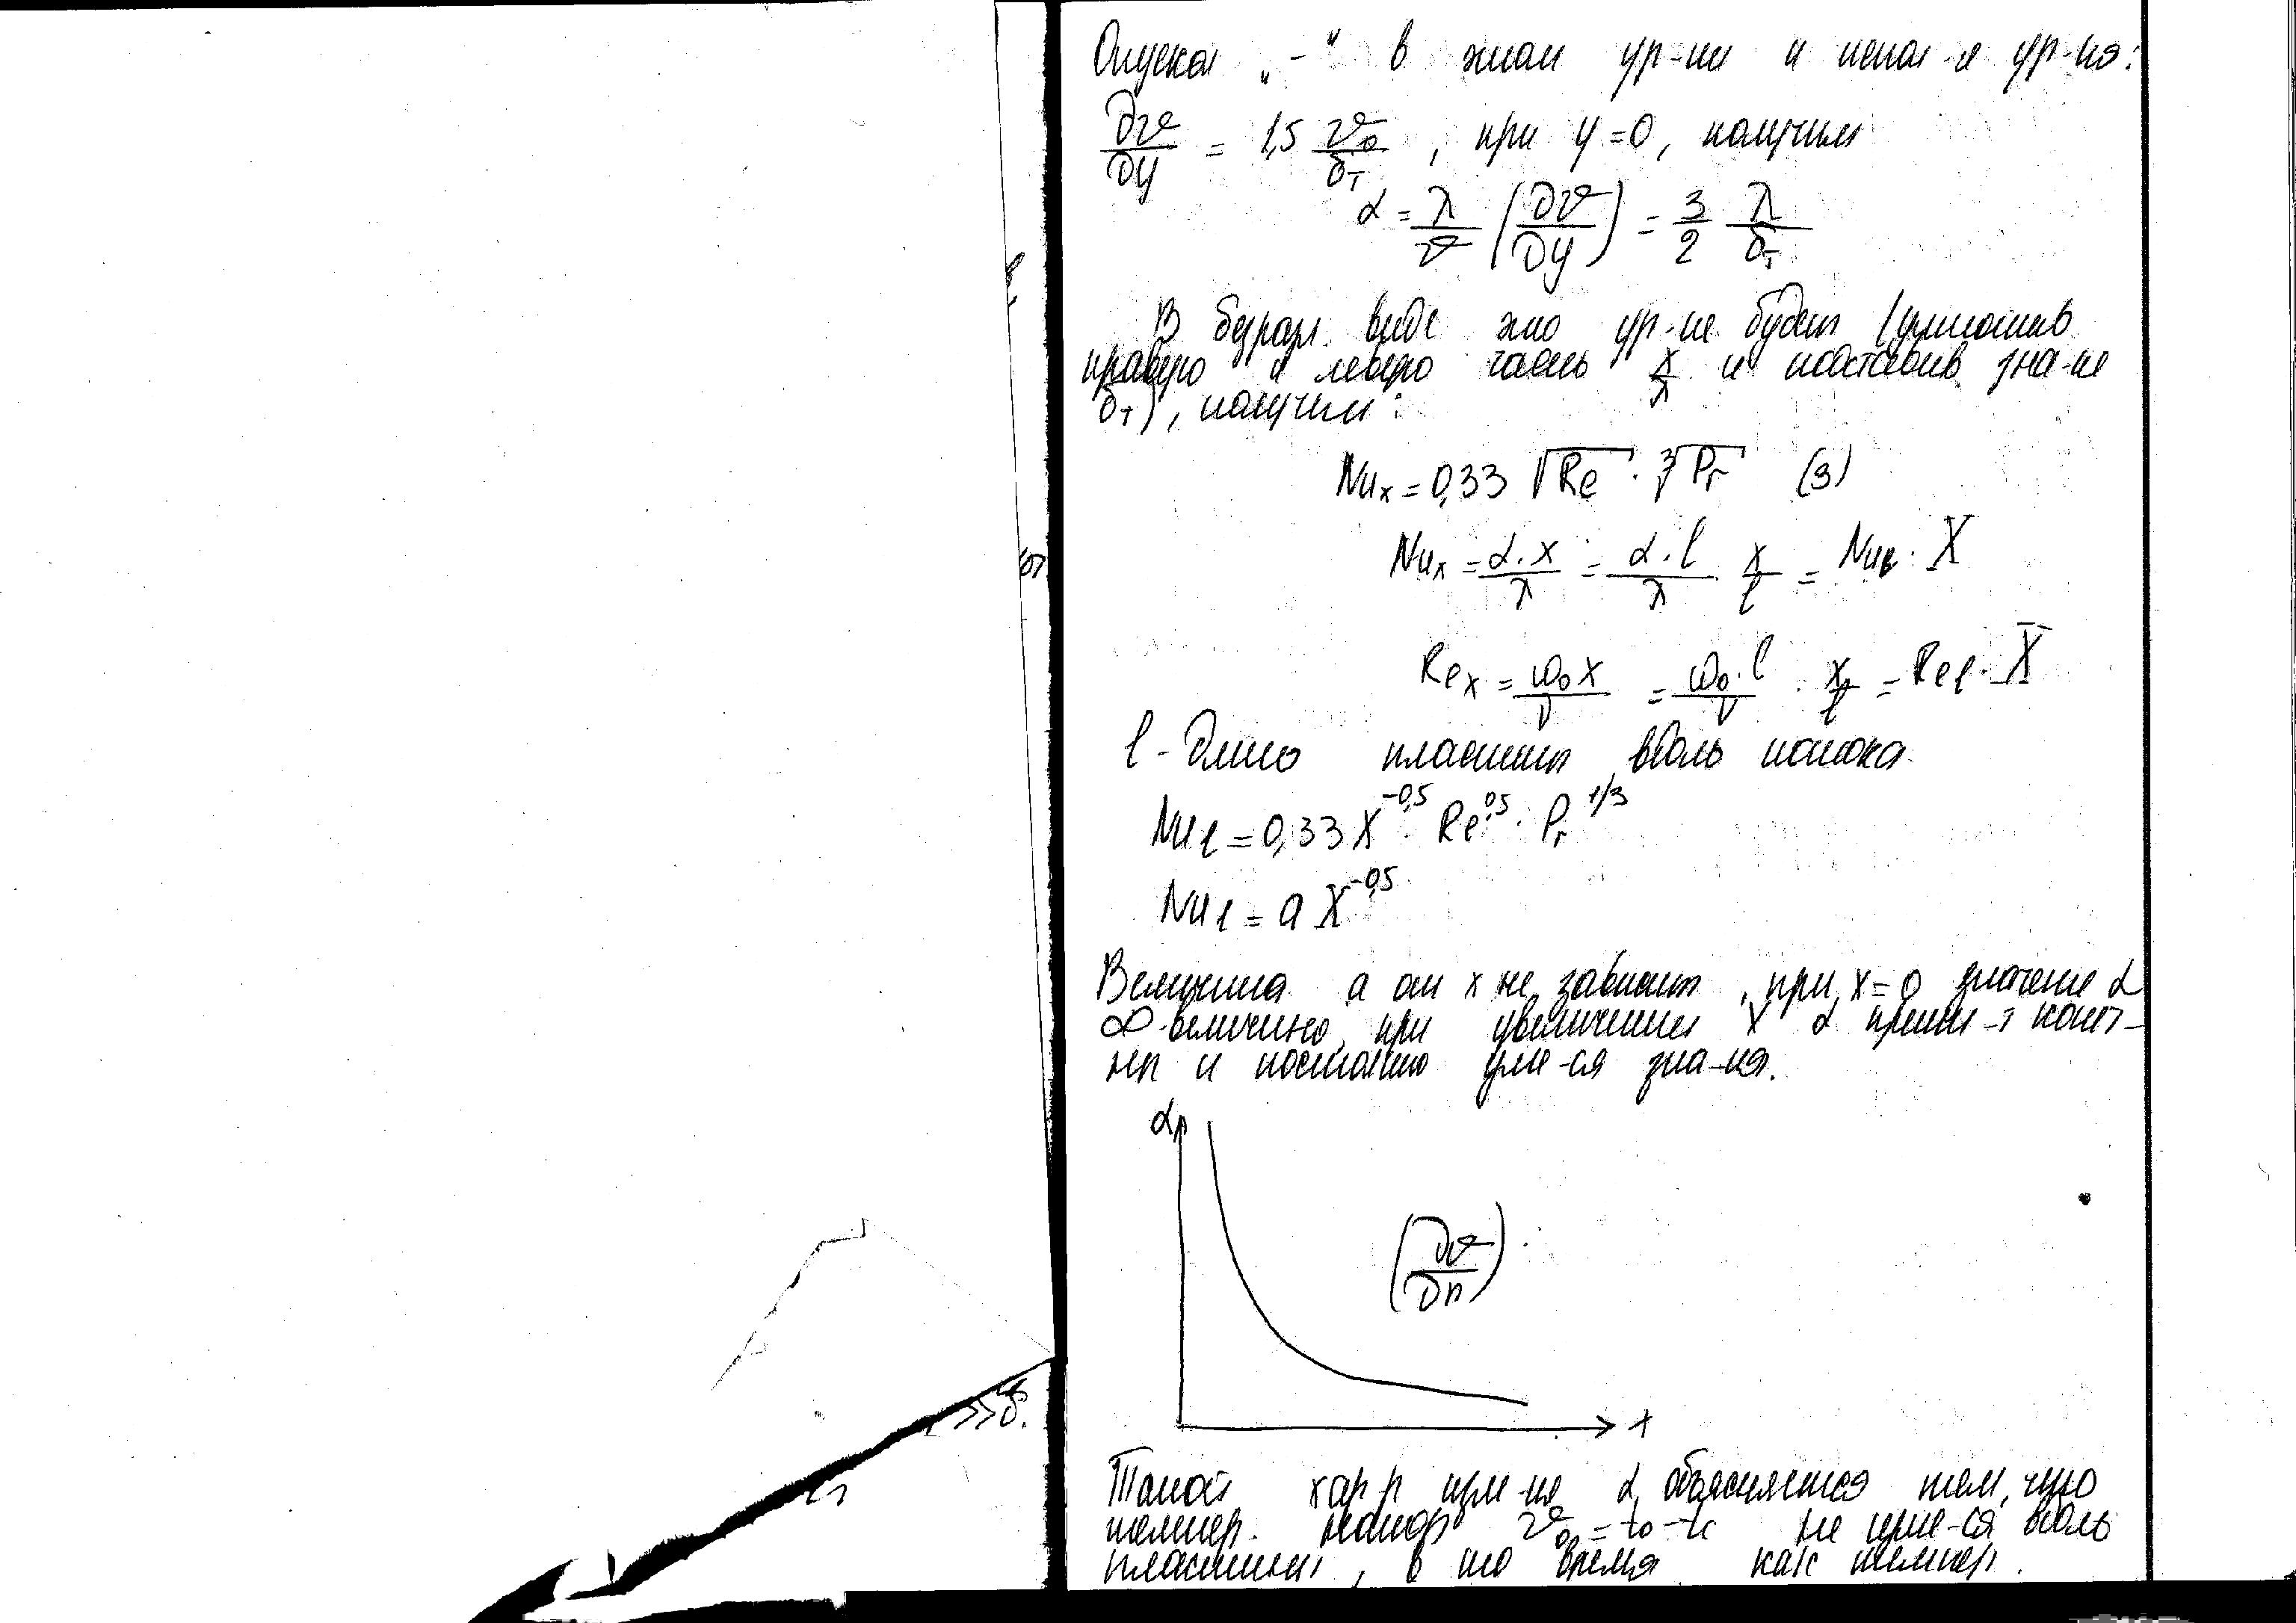 Опуская „-“ в этом ур-ии и использ-я ур-ия:
∂ϑ/∂y = 1,5 ϑ₀/δт , при y=0, получим
α = λ/ϑ (∂ϑ/∂y) = 3/2 λ/δт
В безразм. виде это ур-ие будет (умножив
правую и левую часть x/λ и подставив зна-ие
δт), получим:
Nuₓ = 0,33 √Re · ∛Pr (3)
Nuₓ = α·x/λ = α·l/λ · x/l = Nuₗ · X
Reₓ = ω₀x/ν = ω₀·l/ν · x/l = Reₗ · X
l - длина пластины вдоль потока
Nuₗ = 0,33 X^-0,5 · Re^0,5 · Pr^1/3
Nuₗ = a X^-0,5
Величина a от x не зависит, при x=0 значение α
∞ величина, при увеличении x α прини-т конеч-
ны и постоянно уме-ся зна-ия.
α
(∂ϑ/∂n)
x
Такой хар-р изм-ия α объясняется тем, что
темпер. напор ϑ₀ = t₀-tс не изме-ся вдоль
пластины, в то время как темпер.
>>δ.